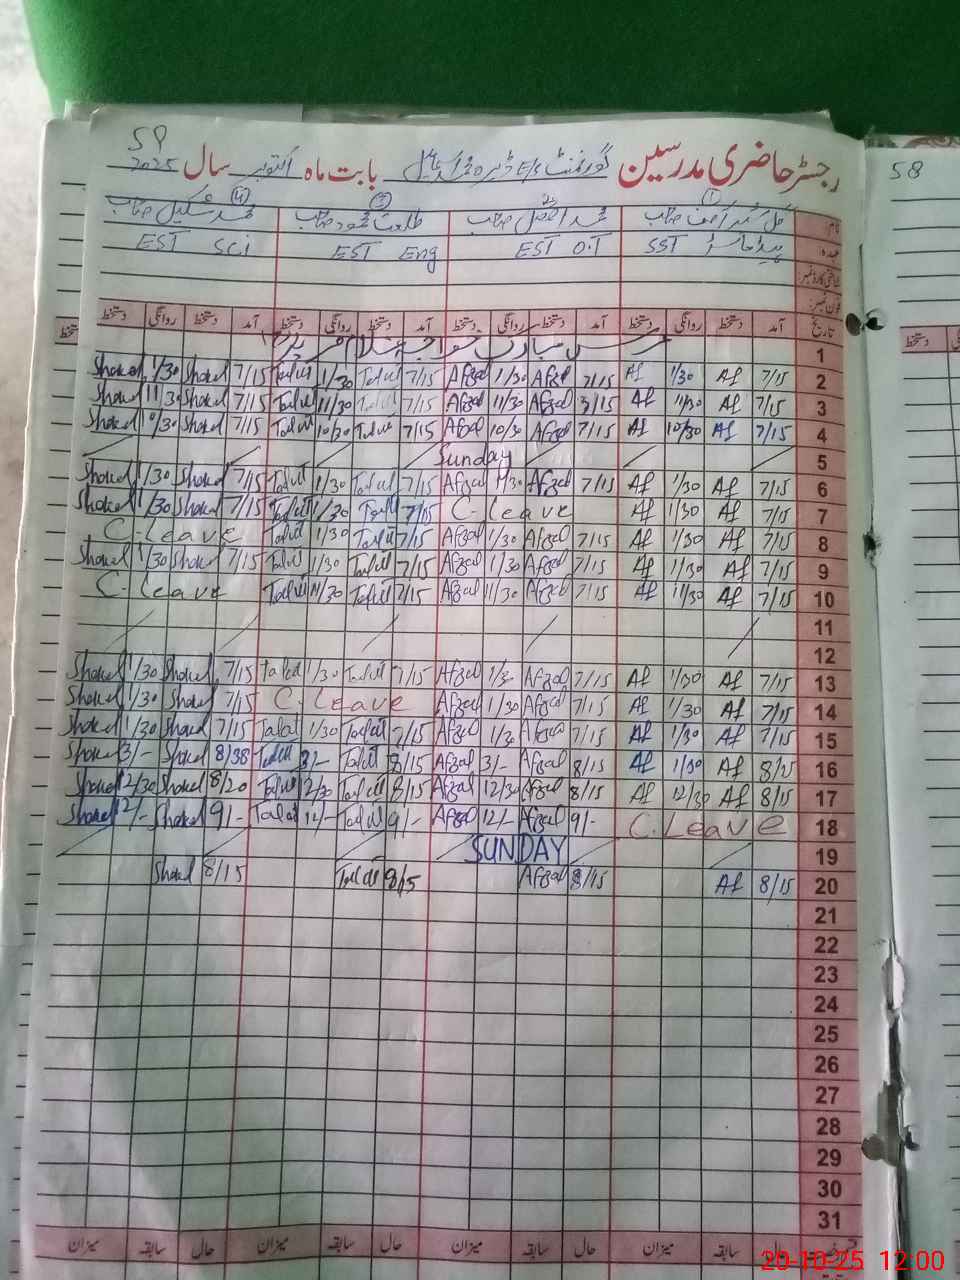 59
58
رجسٹر حاضری مدرسین گورنمنٹ E/S ڈیرہ بابت ماہ اکتوبر سال 2025
نام ① ② طلعت محمود صاحب ③ محمد شکیل صاحب ④
عہدہ SST EST O.T EST Eng EST Sci
شناختی کارڈ نمبر
فون نمبر
تاریخ آمد دستخط روانگی دستخط آمد دستخط روانگی دستخط آمد دستخط روانگی دستخط آمد دستخط روانگی دستخط
1
2 7/15 Af 1/30 Af 7/15 Afzal 1/30 Afzal 7/15 Talat 1/30 Talat 7/15 Shakeel 1/30 Shakeel
3 7/15 Af 11/30 Af 7/15 Afzal 11/30 Afzal 7/15 Talat 11/30 Talat 7/15 Shakeel 11/30 Shakeel
4 7/15 Af 10/30 Af 7/15 Afzal 10/30 Afzal 7/15 Talat 10/30 Talat 7/15 Shakeel 10/30 Shakeel
5 Sunday
6 7/15 Af 1/30 Af 7/15 Afzal 1/30 Afzal 7/15 Talat 1/30 Talat 7/15 Shakeel 1/30 Shakeel
7 7/15 Af 1/30 Af C-Leave 7/15 Talat 1/30 Talat 7/15 Shakeel 1/30 Shakeel
8 7/15 Af 1/30 Af 7/15 Afzal 1/30 Afzal 7/15 Talat 1/30 Talat C-Leave
9 7/15 Af 1/30 Af 7/15 Afzal 1/30 Afzal 7/15 Talat 1/30 Talat 7/15 Shakeel 1/30 Shakeel
10 7/15 Af 11/30 Af 7/15 Afzal 11/30 Afzal 7/15 Talat 11/30 Talat C-Leave
11
12
13 7/15 Af 1/30 Af 7/15 Afzal 1/30 Afzal 7/15 Talat 1/30 Talat 7/15 Shakeel 1/30 Shakeel
14 7/15 Af 1/30 Af 7/15 Afzal 1/30 Afzal C.Leave 7/15 Shakeel 1/30 Shakeel
15 7/15 Af 1/30 Af 7/15 Afzal 1/30 Afzal 7/15 Talat 1/30 Talat 7/15 Shakeel 1/30 Shakeel
16 Af 1/30 Af 8/15 Afzal 3/- Afzal 8/15 Talat 3/- Talat 8/38 Shakeel 3/- Shakeel
17 8/15 Af 12/30 Af 8/15 Afzal 12/30 Afzal 8/15 Talat 12/30 Talat 8/20 Shakeel 12/30 Shakeel
18 C.Leave 9/- Afzal 12/- Afzal 9/- Talat 12/- Talat 9/- Shakeel 12/- Shakeel
19 SUNDAY
20 8/15 Af 8/15 Afzal 8/15 Talat 8/15 Shakeel
21
22
23
24
25
26
27
28
29
30
31
حال سابقہ میزان حال سابقہ میزان حال سابقہ میزان حال سابقہ میزان
دستخط
دستخط
20-10-25 12:00